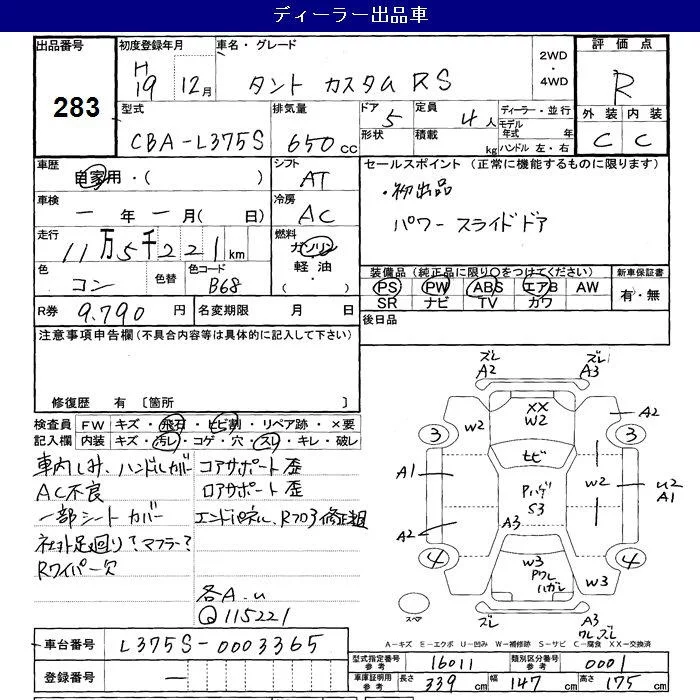 ディーラー出品車
出品番号 283
初度登録年月 H19 12月
車名・グレード タント カスタム RS
2WD・4WD
評価点 R
外装 内装
C C
型式 CBA-L375S
排気量 650cc
ドア 5
形状
定員 4人
積載 kg
ディーラー・並行
モデル年式 年
ハンドル 左・右
車歴 自家用・( )
シフト AT
車検 ー年ー月(日)
冷房 AC
走行 11万5千221km
燃料 ガソリン 軽油・( )
色 コン 色替
色コード B68
R券 9.790円
名変期限 月 日
セールスポイント(正常に機能するものに限ります)
・初出品
パワースライドドア
装備品(純正品に限り○をつけてください)
PS PW ABS エアB AW
SR ナビ TV カワ
新車保証書 有・無
後日品
注意事項申告欄(不具合内容等は具体的に記入して下さい)
修復歴 有〔箇所 〕
検査員記入欄
FW キズ・飛石・ヒビ割・リペア跡・×要
内装 キズ・汚レ・コゲ・穴・スレ・キレ・破レ
車内しみ、ハンドルカバー
AC不良
一部シートカバー
社外足回り?マフラー?
Rワイパー欠
コアサポート歪
ロアサポート歪
エンドパネル、Rフロア修正粗
各A.u
Q 115221
ズレ A2
ズレ A3
XX
W2
W2
A2
3
3
ヒビ
A1
Pハゲ
S3
W2
U2
A1
A2
A3
4
4
W3
Pワレ
ハガレ
W3
スペア
ズレ
A3
ワレ、ズレ
A-キズ E-エクボ U-凹み W-補修跡 S-サビ C-腐食 XX-交換済
車台番号 L375S-0003365
登録番号 ー
型式指定番号 参考 16011
類別区分番号 参考 0001
車庫証明用 参考 長さ 339cm 幅 147cm 高さ 175cm